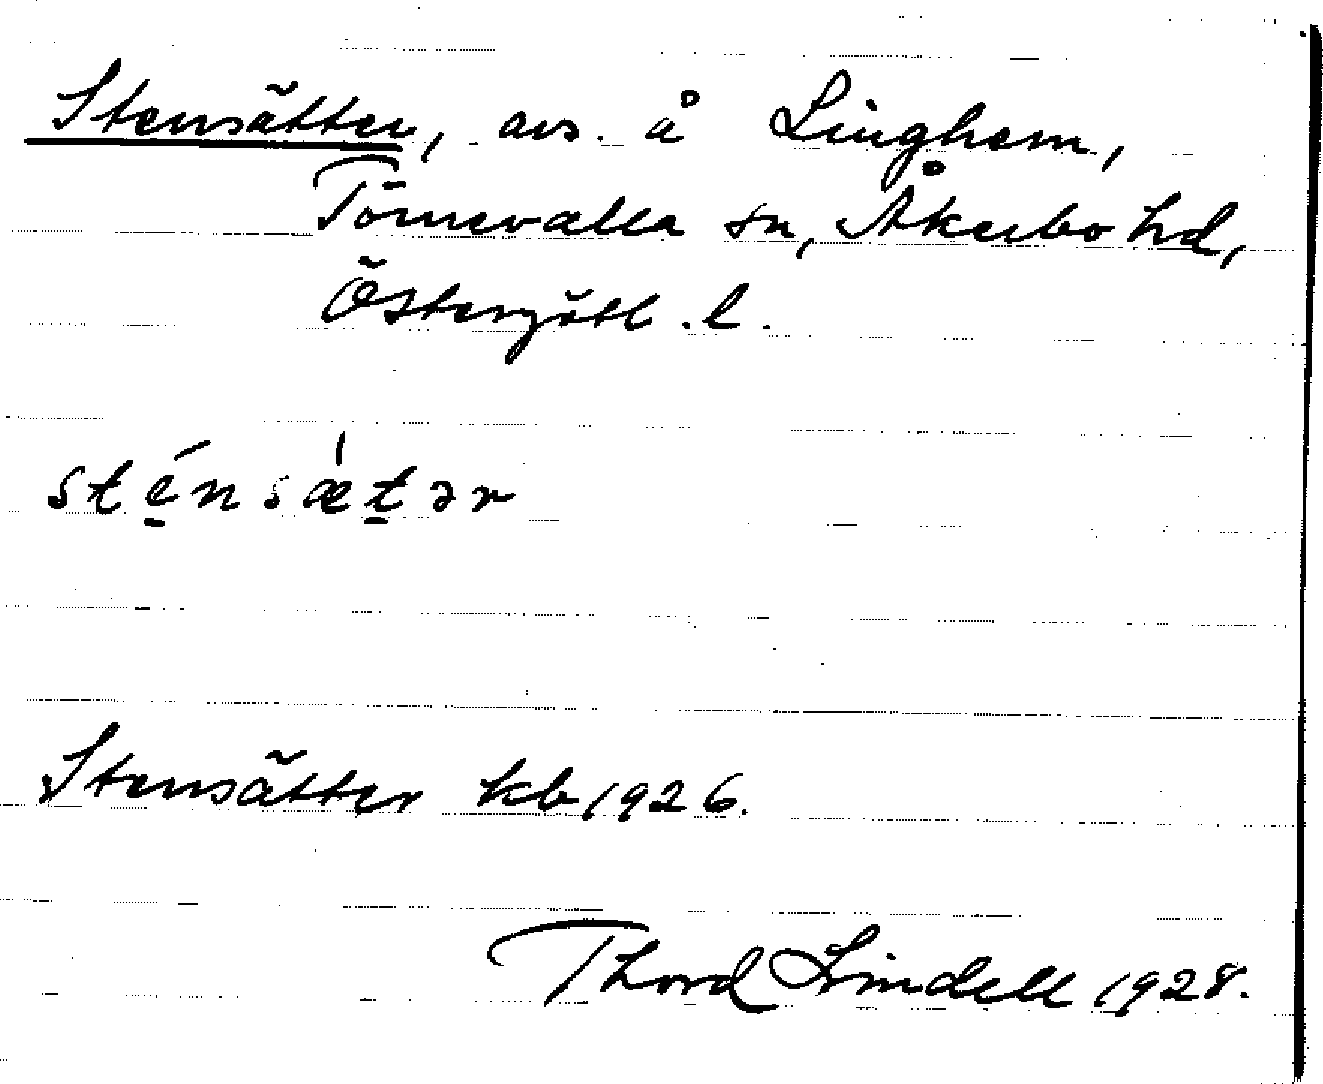 Stensätter, avs. å Linghem,
Törnevalla sn, Åkerbo hd,
Östergötl. l.
sté̱nsæ̍ṯər
Stensätter kb 1926.
Thord Lindell 1928.